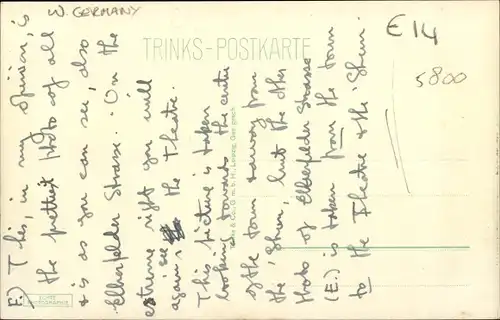 W. GERMANY
TRINKS-POSTKARTE
€14
5800
F.) This, in my opinion, is
the prettiest photo of all
& is as you can see, also
Elberfelder Strasse. On the
extreme right you will
see
again the Theatre.
This picture is taken
looking towards the centre
of the town & away from
the 'Shun', but the other
Photo of Elberfelder Strasse
(E.) is taken from the town
to the Theatre & the 'Shun'.
& Co. G.m.b.H., Leipzig. Ges. gesch.
ECHTE
PHOTOGRAPHIE